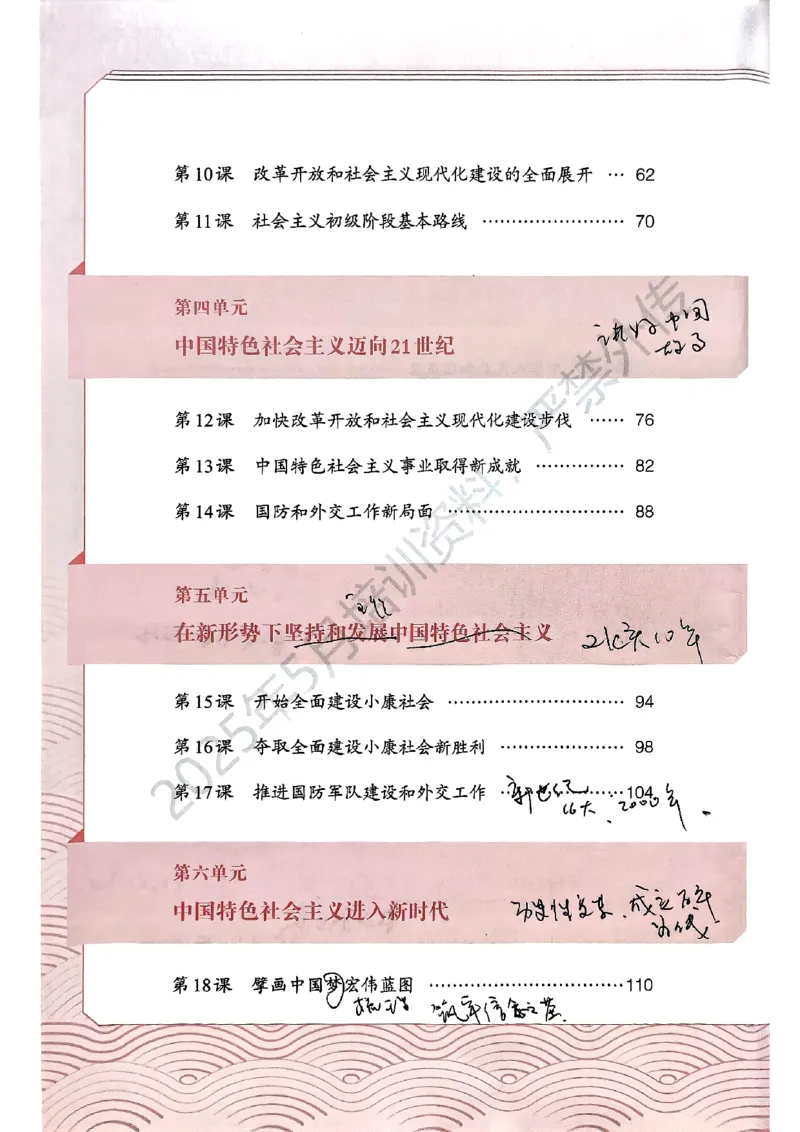 第10课 改革开放和社会主义现代化建设的全面展开 … 62
第11课 社会主义初级阶段基本路线 …………………… 70
第四单元
中国特色社会主义迈向21世纪
讲好中国
故事
第12课 加快改革开放和社会主义现代化建设步伐 …… 76
第13课 中国特色社会主义事业取得新成就 …………… 82
第14课 国防和外交工作新局面 ………………………… 88
第五单元
在新形势下坚持和发展中国特色社会主义
第15课 开始全面建设小康社会 ………………………… 94
第16课 夺取全面建设小康社会新胜利 ………………… 98
第17课 推进国防军队建设和外交工作 ……………104
新世纪
16大、2000年
第六单元
中国特色社会主义进入新时代
成立百年
第18课 擘画中国梦宏伟蓝图 ……………………………110
2025年5月培训资料,严禁外传